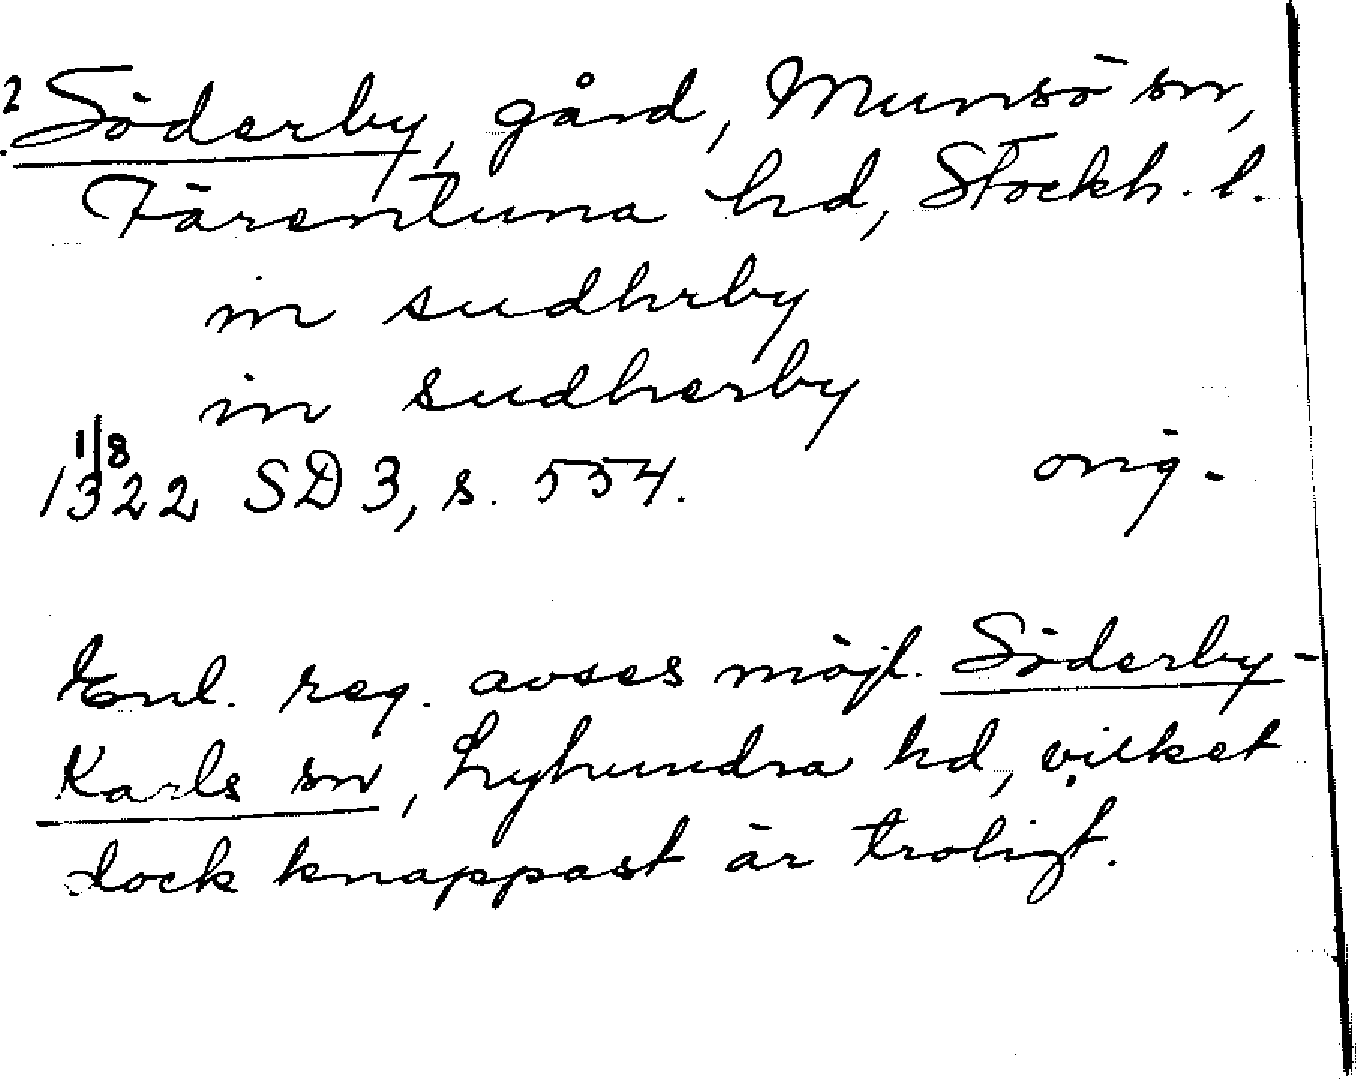 ? Söderby, gård, Munsö sn,
Färentuna hd, Stockh. l.
in sudhrby
in sudherby
1/8
1322 SD 3, s. 554. orig.
Enl. reg. avses möjl. Söderby-
Karls sn, Lyhundra hd, vilket
dock knappast är troligt.